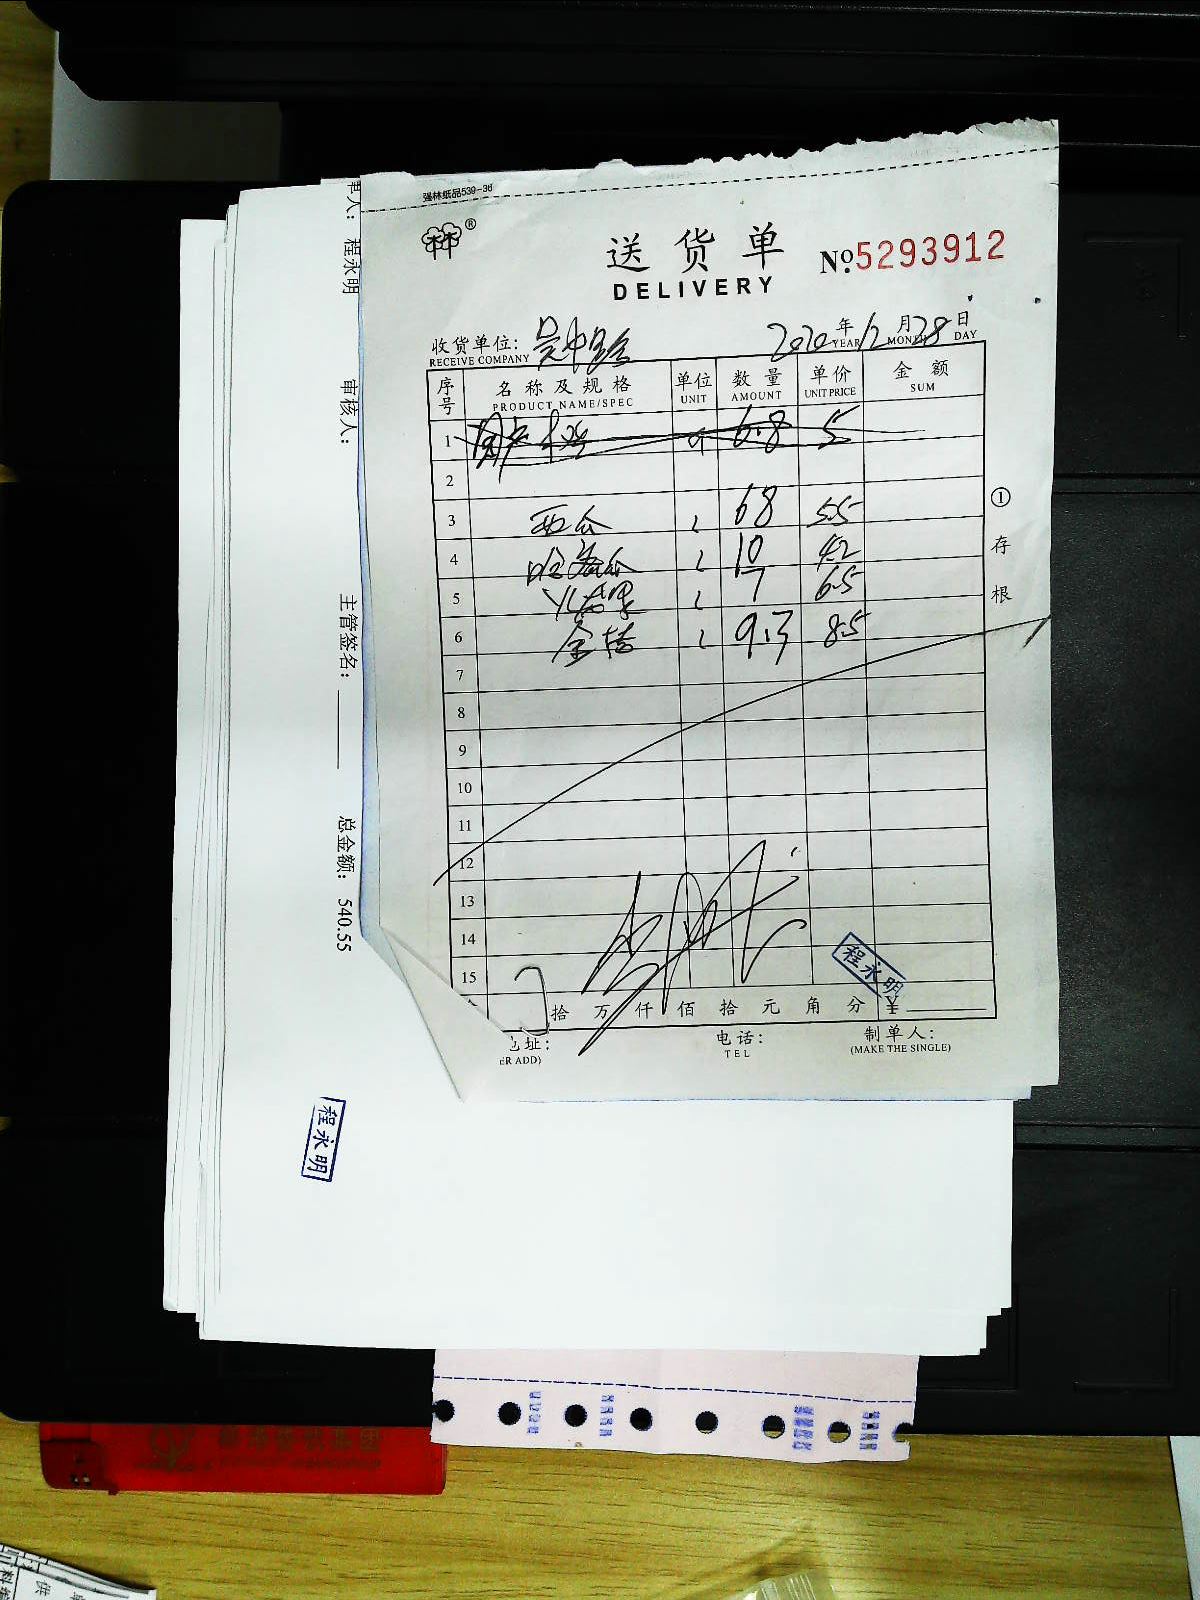 强林纸品539-36
林®
送货单
№5293912
DELIVERY
收货单位: 吴中宝宝
RECEIVE COMPANY
2020年12月28日
YEAR MONTH DAY
序号 名称及规格 单位 数量 单价 金额
PRODUCT NAME/SPEC UNIT AMOUNT UNIT PRICE SUM
1 6.8 5
2
3 西瓜 68 5.5
4 哈密瓜 10 4.2
5 火龙果 7 6.5
6 金桔 9.3 8.5
7
8
9
10
11
12
13
14
15
拾 万 仟 佰 拾 元 角 分 ¥
①存根
程永明
址: 电话: 制单人:
ER ADD) TEL (MAKE THE SINGLE)
人: 程永明 审核人: 主管签名: 总金额: 540.55
程永明